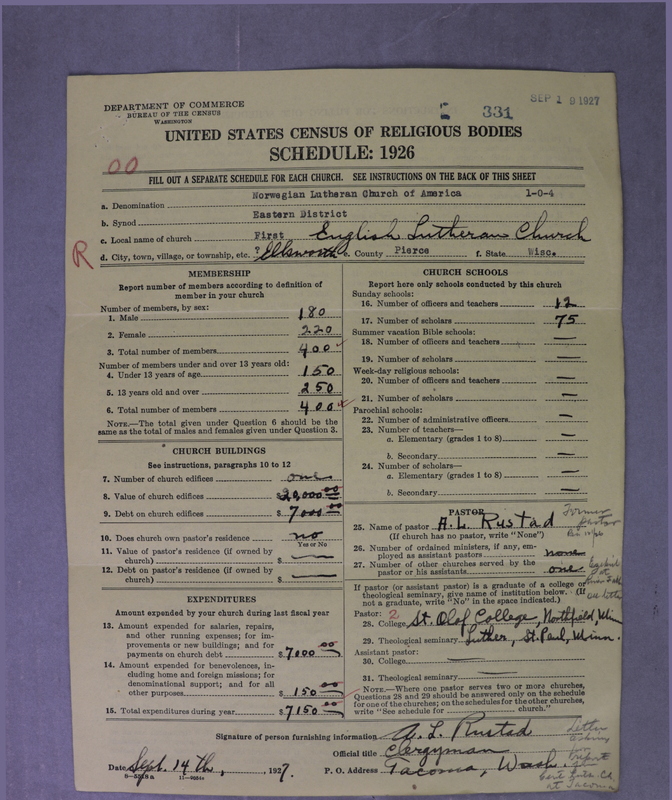 DEPARTMENT OF COMMERCE
BUREAU OF THE CENSUS
WASHINGTON
331
SEP 1 9 1927
UNITED STATES CENSUS OF RELIGIOUS BODIES
SCHEDULE: 1926
00
FILL OUT A SEPARATE SCHEDULE FOR EACH CHURCH. SEE INSTRUCTIONS ON THE BACK OF THIS SHEET
a. Denomination Norwegian Lutheran Church of America 1-0-4
b. Synod Eastern District
c. Local name of church First English Lutheran Church
R
d. City, town, village, or township, etc. ? Ellsworth e. County Pierce f. State Wisc.
MEMBERSHIP
Report number of members according to definition of
member in your church
Number of members, by sex:
1. Male 180
2. Female 220
3. Total number of members 400
Number of members under and over 13 years old:
4. Under 13 years of age 150
5. 13 years old and over 250
6. Total number of members 400
NOTE.—The total given under Question 6 should be the
same as the total of males and females given under Question 3.
CHURCH BUILDINGS
See instructions, paragraphs 10 to 12
7. Number of church edifices one
8. Value of church edifices $20,000 00
9. Debt on church edifices $ 7000 00
10. Does church own pastor's residence no
Yes or No
11. Value of pastor's residence (if owned by
church) $ —
12. Debt on pastor's residence (if owned by
church) $ —
EXPENDITURES
Amount expended by your church during last fiscal year
13. Amount expended for salaries, repairs,
and other running expenses; for im-
provements or new buildings; and for
payments on church debt $7000 00
14. Amount expended for benevolences, in-
cluding home and foreign missions; for
denominational support; and for all
other purposes $ 150 00
15. Total expenditures during year $7150
CHURCH SCHOOLS
Report here only schools conducted by this church
Sunday schools:
16. Number of officers and teachers 12
17. Number of scholars 75
Summer vacation Bible schools:
18. Number of officers and teachers —
19. Number of scholars —
Week-day religious schools:
20. Number of officers and teachers —
21. Number of scholars —
Parochial schools:
22. Number of administrative officers —
23. Number of teachers—
a. Elementary (grades 1 to 8) —
b. Secondary —
24. Number of scholars—
a. Elementary (grades 1 to 8) —
b. Secondary —
PASTOR
Former
pastor
25. Name of pastor A. L. Rustad
(If church has no pastor, write "None")
26. Number of ordained ministers, if any, em-
ployed as assistant pastors none
27. Number of other churches served by the
pastor or his assistants one
If pastor (or assistant pastor) is a graduate of a college or
theological seminary, give name of institution below. (If
not a graduate, write "No" in the space indicated.)
Pastor: 2
28. College St. Olaf College, Northfield, Minn
29. Theological seminary Luther, St. Paul, Minn.
Assistant pastor:
30. College —
31. Theological seminary —
NOTE.—Where one pastor serves two or more churches,
Questions 28 and 29 should be answered only on the schedule
for one of the churches; on the schedules for the other churches,
write "See schedule for church."
Signature of person furnishing information A. L. Rustad
Official title Clergyman
Date Sept. 14th, 1927. P. O. Address Tacoma, Wash.
Letter
report
at Tacoma